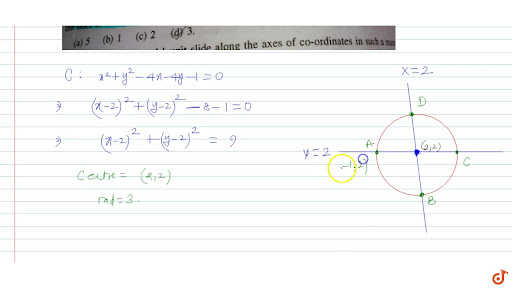 (a) 5 (b) 1 (c) 2 (d) 3.
slide along the axes of co-ordinates in such a
C : x² + y² - 4x - 4y - 1 = 0
⇒ (x-2)² + (y-2)² - 8 - 1 = 0
⇒ (x-2)² + (y-2)² = 9
Centre = (2,2)
rad = 3.
x=2
D
y=2
A
(2,2)
C
-1,2)
B